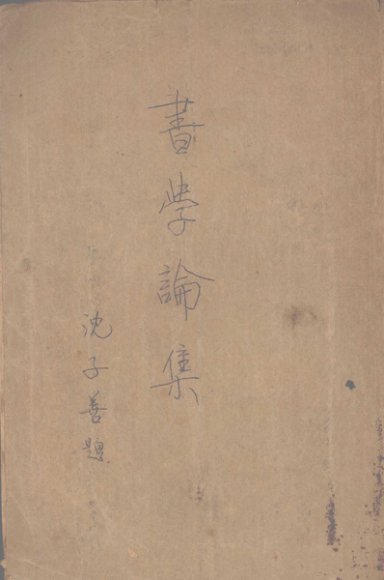 書學論集
沈子善題